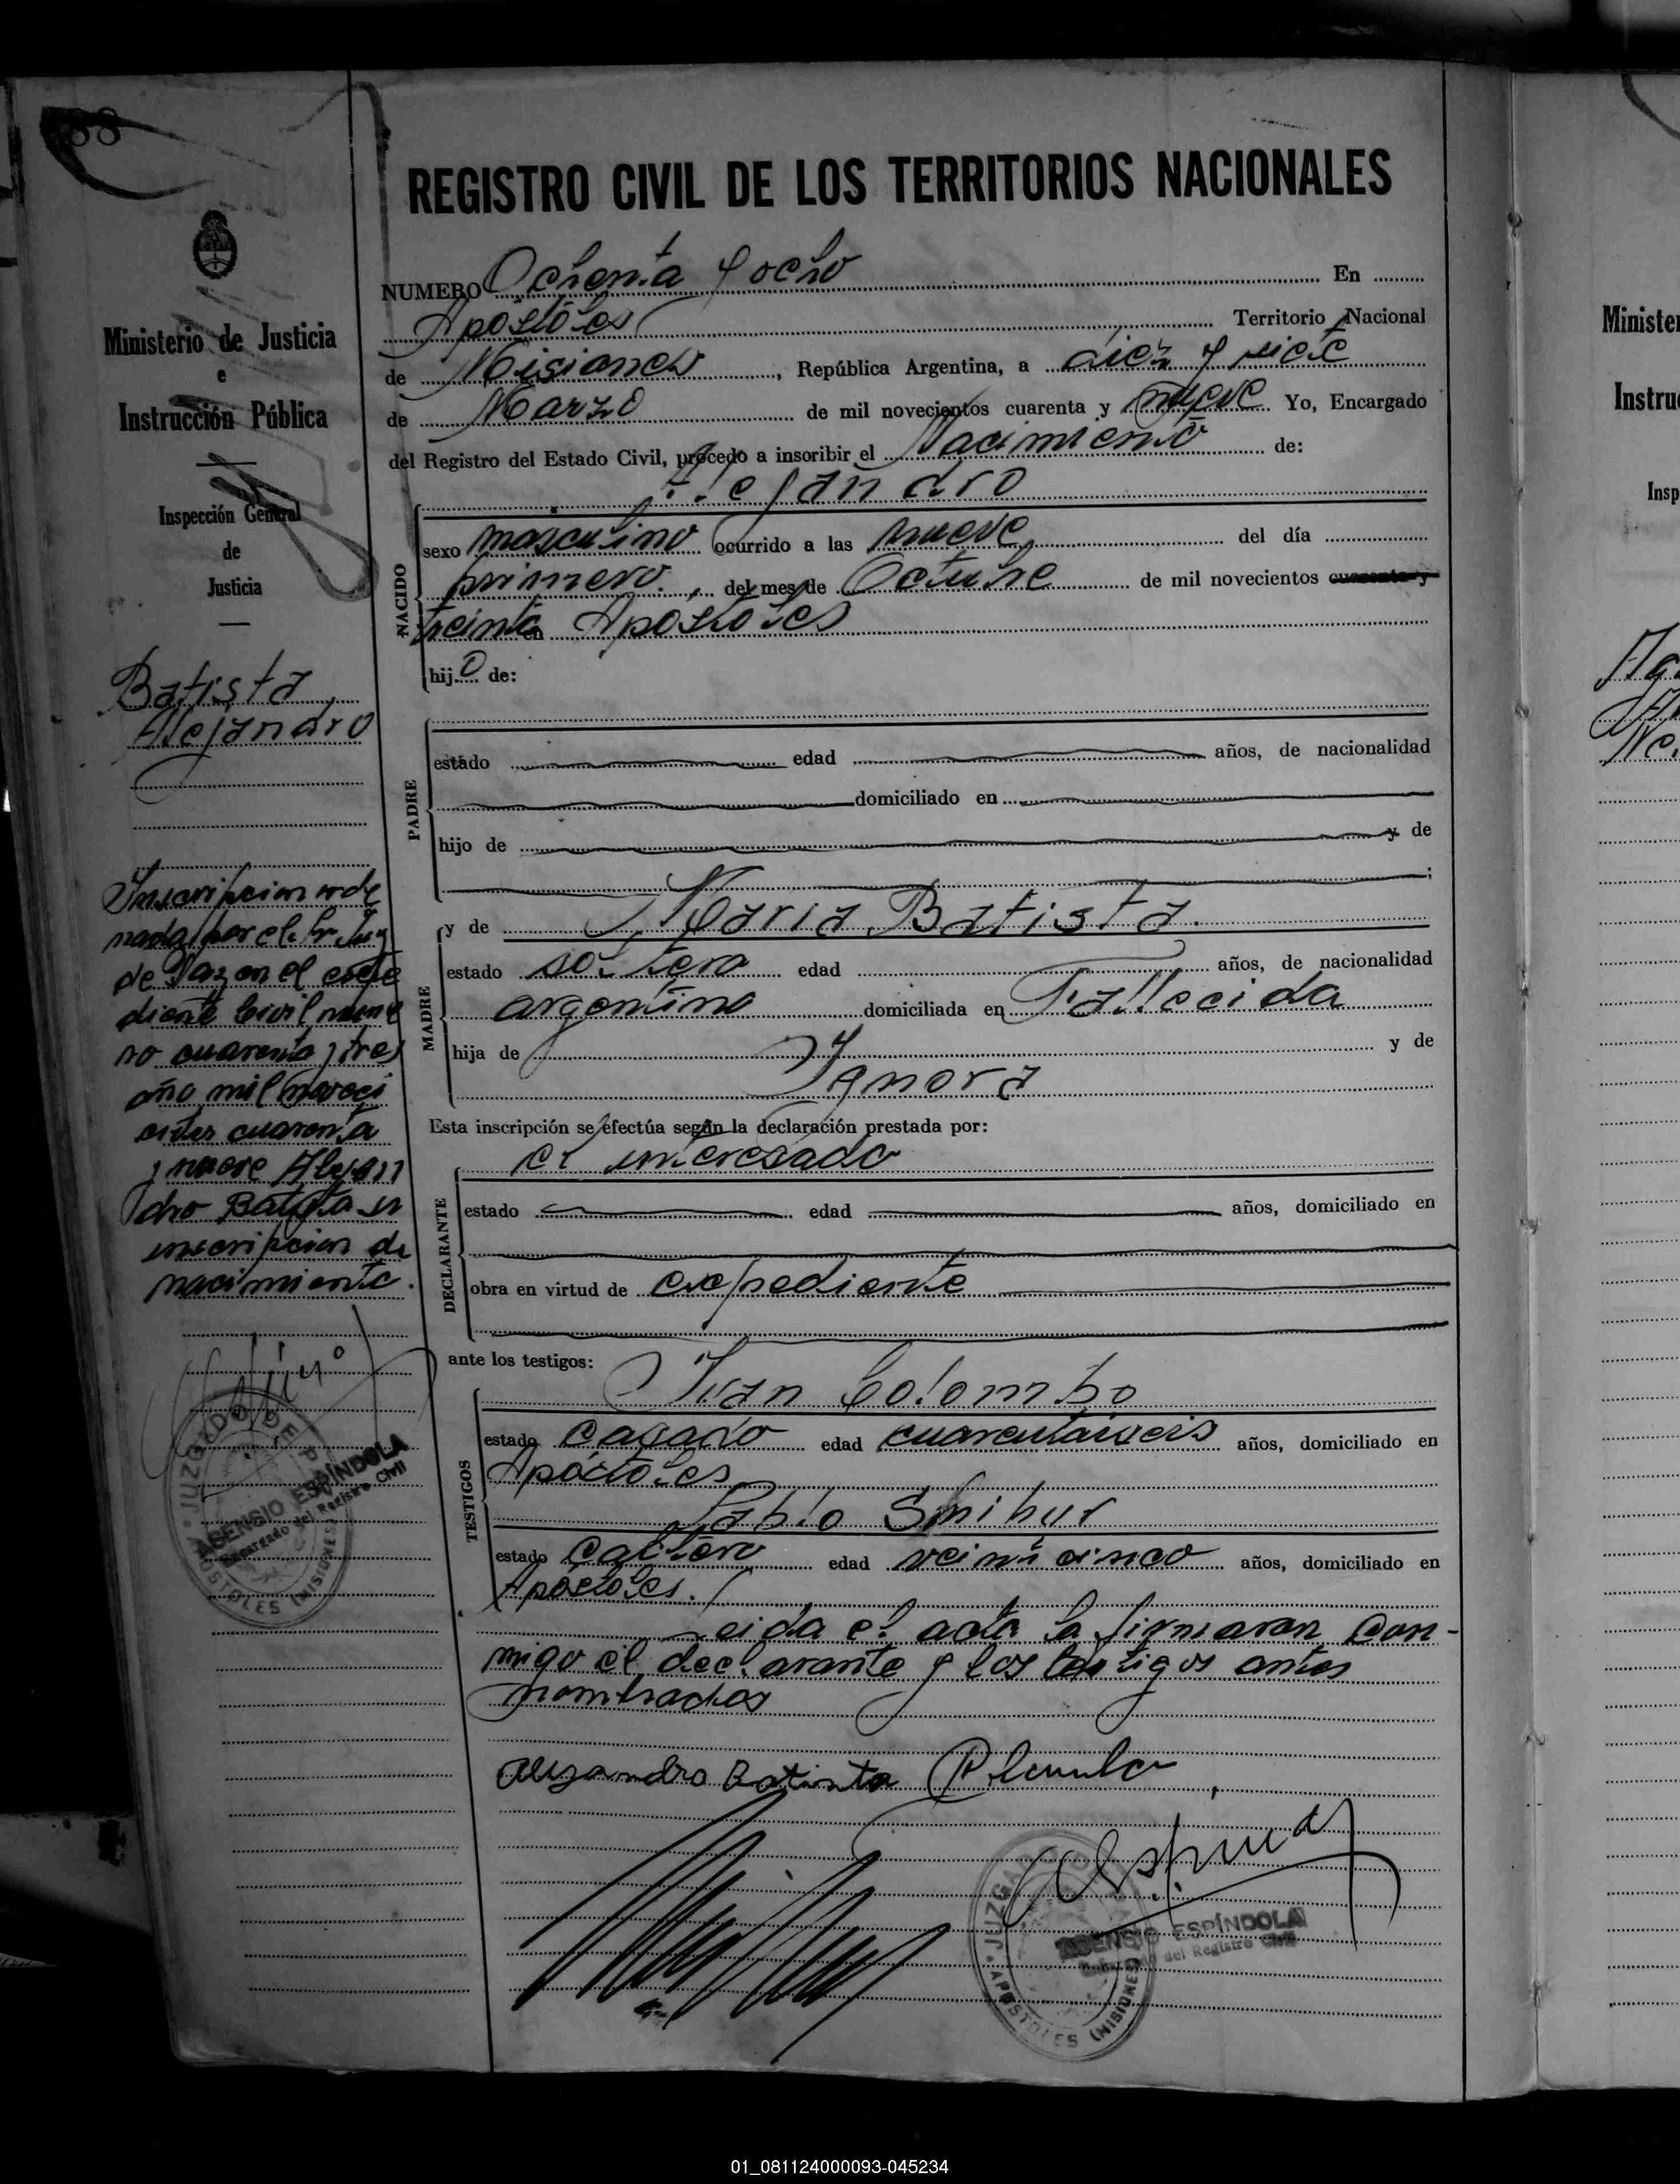 88
Ministerio de Justicia
e
Instrucción Pública
Inspección General
de
Justicia
Batista
Alejandro
Inscripcion orde
nada por el Sr Juez
de Paz en el expe
diente Civil nume
ro cuarenta y tres
año mil noveci
entos cuarenta
y nueve Alejan
dro Batista s/
inscripcion de
nacimiento.
JUZGADO DE P
APOSTOLES (MISIONES)
ASENSIO ESPÍNDOLA
Encargado del Registro Civil
REGISTRO CIVIL DE LOS TERRITORIOS NACIONALES
NUMERO Ochenta y ocho En
Apóstoles Territorio Nacional
de Misiones, República Argentina, a diez y siete
de Marzo de mil novecientos cuarenta y nueve Yo, Encargado
del Registro del Estado Civil, procedo a insoribir el Nacimiento de:
Alejandro
NACIDO
sexo masculino ocurrido a las nueve del día
primero. del mes de Octubre de mil novecientos cuarenta y
treinta en Apóstoles
hij o de:
PADRE
estado edad años, de nacionalidad
domiciliado en
hijo de y de
;
MADRE
y de Maria Batista.
estado soltera edad años, de nacionalidad
argentina domiciliada en Fallecida
hija de y de
Ygnora
Esta inscripción se efectúa según la declaración prestada por:
el interesado
DECLARANTE
estado edad años, domiciliado en
obra en virtud de expediente
ante los testigos:
TESTIGOS
Juan Colombo
estado casado edad cuarentaiseis años, domiciliado en
Apóstoles
Pablo Smihur
estado soltero edad veinticinco años, domiciliado en
Apóstoles.
Leida el acta la firmaron con-
migo el declarante y los testigos antes
nombrados
Alejandro Batista
JUZGADO
APOSTOLES (MISIONES)
ASENSIO ESPÍNDOLA
Encargado del Registro Civil
Ministe
Instru
Insp
01_081124000093-045234